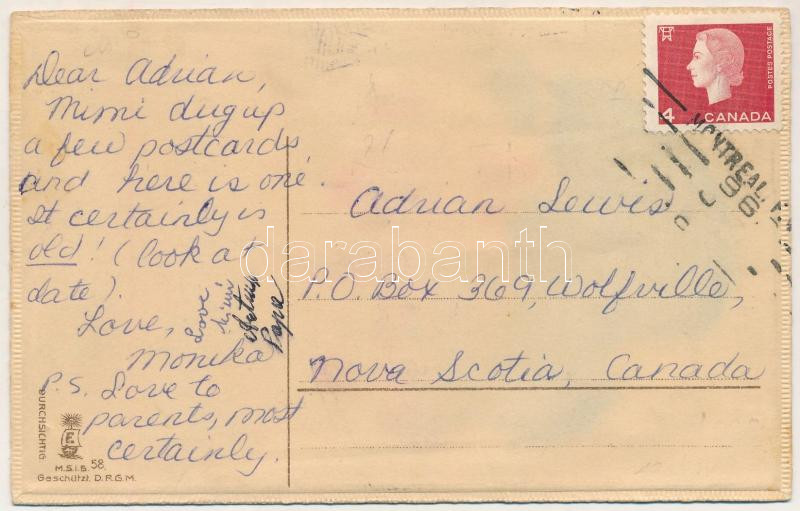 Dear Adrian,
Mimi dug up
a few postcards
and here is one.
It certainly is
old! (look at
date).
Love,
Monika
Love
Mimi
Papa
P.S. Love to
parents, most
certainly.
DURCHSICHTIG
E
M.S.i.B. 58.
Geschützt. D.R.G.M.
POSTES POSTAGE
4 CANADA
MONTREAL
Adrian Lewis
P.O. Box 369, Wolfville,
Nova Scotia, Canada
darabanth